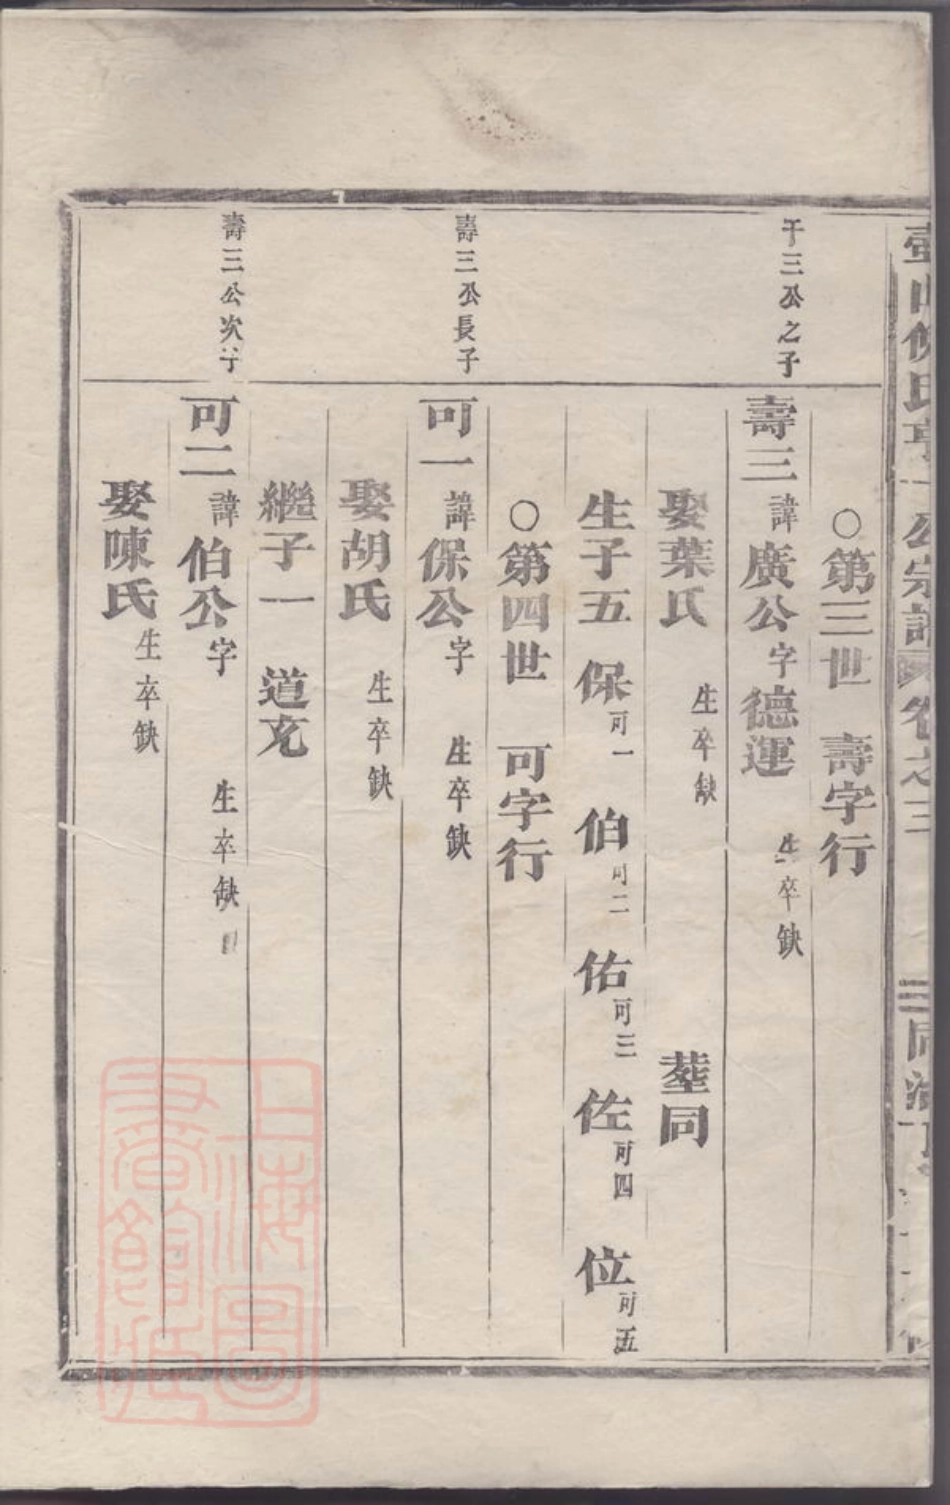 壺山侯氏亨一公宗譜 卷之三
三 同治
○第三世 壽字行
千三公之子
壽三諱廣公字德運 生卒缺
娶葉氏 生卒缺 塟同
生子五 保可一 伯可二 佑可三 佐可四 位可五
○第四世 可字行
壽三公長子
可一諱保公字 生卒缺
娶胡氏 生卒缺
繼子一 道充
壽三公次子
可二諱伯公字 生卒缺
娶陳氏生卒缺
上海圖書館藏